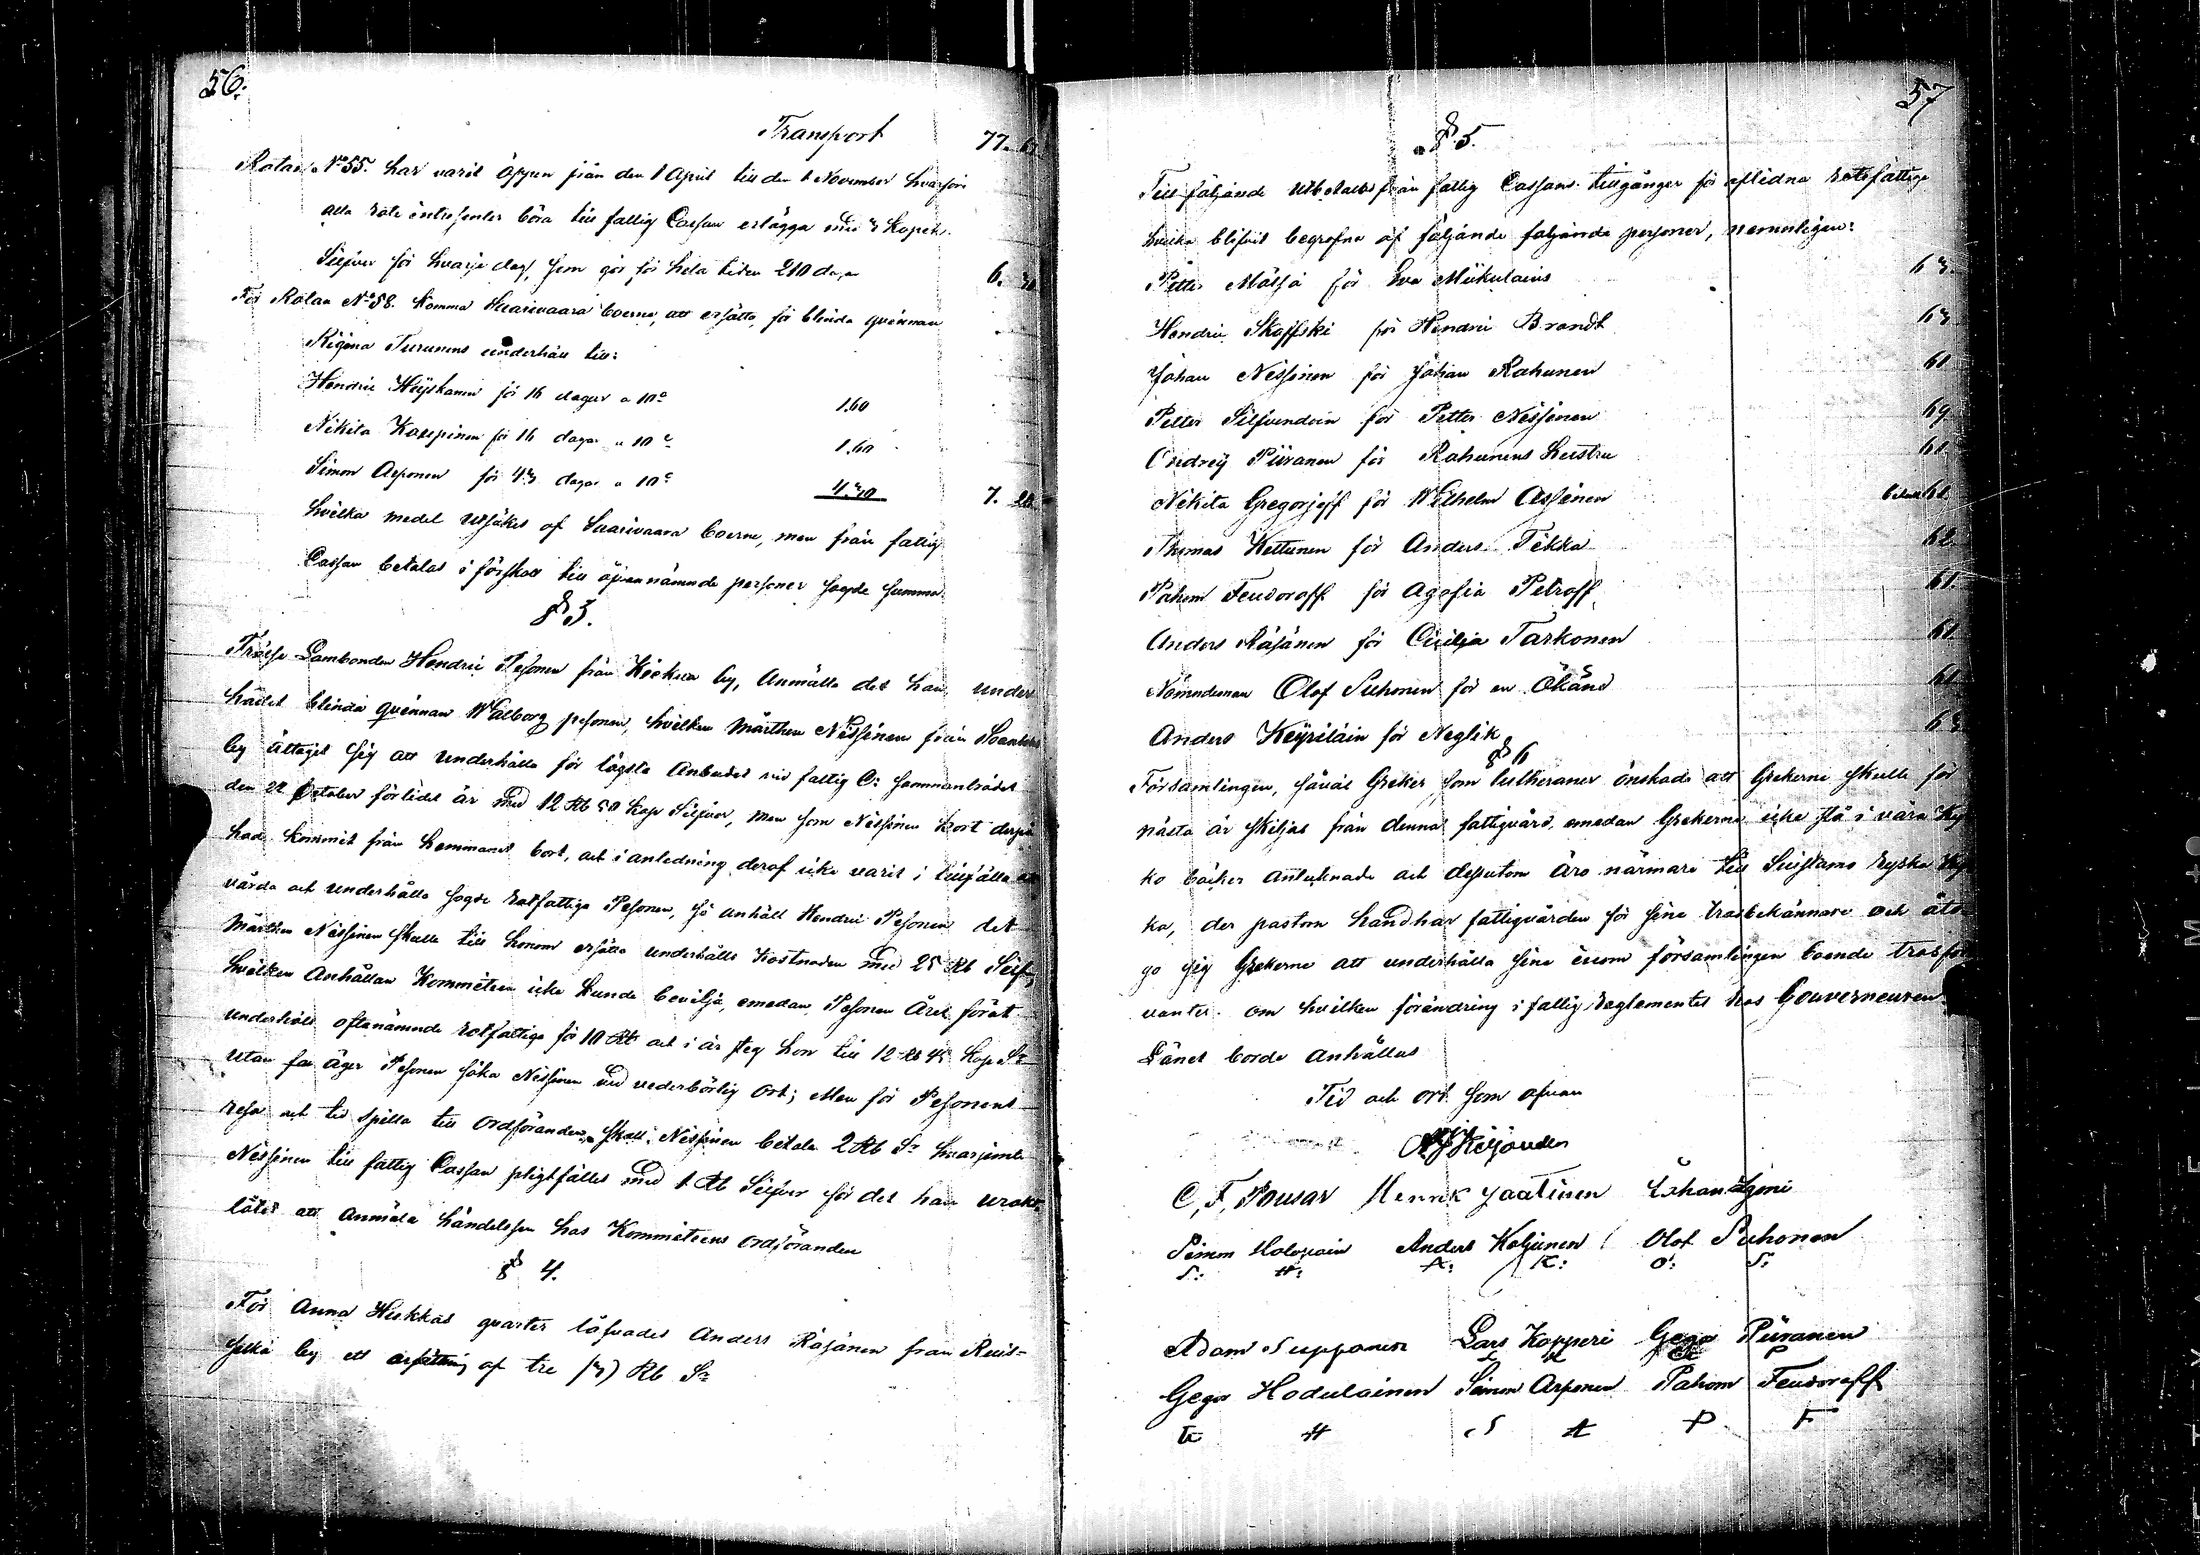 56.
Transport 77.
Rotan N:o 55. har varit öppen från den 1 April till den 1 November hvarföre
alla rote intressenter böra till fattig Cassan erlägga med 3 Kopek
Silfver för hvarje dag, som gör för hela tiden 210 dagar 6.
För Rotan N:o 58. komma Saarivaara boerne, att ersätta, för blinda qvinnan
Regina Turunens underhåll till:
Hendric Höyskanen för 16 dagar a 10 c 1.60
Nikita Karppinen för 16 dagar a 10 c 1.60
Simon Asponen för 43 dagar a 10 c 4.30 7.
hvilka medel utsökes af Saarivaara boerne, men från fattig
Cassan betalas i förskott till ofvannämnde personer sagde summa.
§ 3.
Frälse Lambonden Hendric Pesonen från Kockua by, Anmälte det han under
hållit blinda qvinnan Walborg pesonen, hvilken Mårthen Nissinen från
by åtagit sig att underhålla för lägsta Anbudet vid fattig C: Sammanträdet
den 22 October förlidet år med 12 Rb 50 Kop Silfver, men som Nissinen kort derpå
had kommit från hemmanet bort, och i anledning deraf icke varit i tillfälle att
vårda och underhålla sagde rotfattige Pesonen, så anhåll Hendric Pesonen det
Mårthen Nissinen skulle till honom ersätta underhålls kostnaden med 25 Rb Silf;
hvilken Anhållan Kommiteen icke kunde bevilja, emedan Pesonen Året förut
underhöll oftanämnde rotfattige för 10 Rb och i år steg hon till 12 Rb 45 Kop Sr
utan får äger Pesonen söka Nissinen vid vederbörlig ort; Men för Pesonens
resa och tid spilla till ordföranden, skall Nissinen betala 2 Rb Sr hvarjemte
Nissinen till fattig Cassan pligtfälles med 1 Rb Silfver för det han urakt
låtit att anmäla händelsen hos Kommiteens ordföranden
§ 4.
För Anna Hiskkas qvarter låfvades Anders Räsänen från Ruis-
selkä by ett ersättning af tre (3) Rb Sr
57
§ 5.
Till följande utbetaltes från fattig Cassans tillgångar för aflidna rotefattige
hvilka blifvit begrafne af följande följande personer, nemnligen:
Petter Mässä för Eva Mikulains 63.
Hendric Skoffski för Hendric Brandt 63.
Johan Nissinen för Johan Rahunen 61.
Petter Silfvendoin för Petter Nissinen 69.
Ondrey Piiranen för Rahunens Hustru 61.
Nikita Gregorjeff för Wilhelm Assinen 61.
Thomas Kettunen för Anders Tikka 62.
Pahom Feudoroff för Agafia Petroff 61.
Anders Räsänen för Cicilja Tarkonen 61.
Nämndeman Olof Suhonen för en Okänd 61
Anders Keyriläin för Neglik 63
§ 6
Församlingen, såväl Greker som lutheraner önskade att Grekerne skulle för
nästa år skiljas från denna fattigvård, emedan Grekerna icke stå i våra Kyr
ko böcker antecknade och dessutom äro närmare till Suistamo ryska Kyr
ka, der pastorn handhar fattigvården för sine trosbekännare och åto-
go sig Grekerne att underhålla sine inom församlingen boende trosför
vanter. om hvilken förändring i fattig reglementet hos Gouverneuren
Länet borde anhållas
Tid och ort som ofvan
C, F, Pousar Henrik Jaatinen
Simon Holopain Anders Koljunen Olof Suhonen
S: H: A: K: O: S:
Adam Supponen Lars Kopperi Gega Piiranen
L K G P
Gega Hodulainen Simon Asponen Pahom Feudoroff
G H S A P F